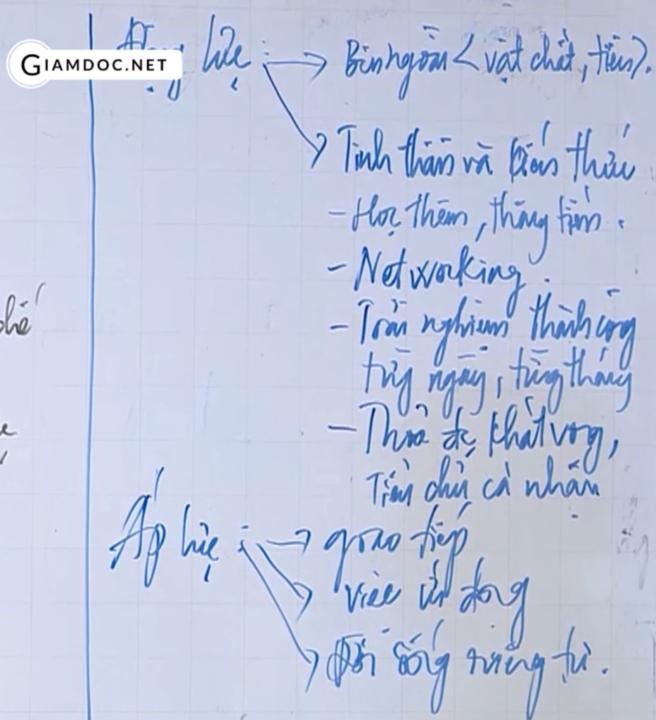 GIAMDOC.NET
Động lực : → Bên ngoài < vật chất, tiền).
→ Tinh thần và kiến thức
- Học thêm, thăng tiến.
- Networking.
- Trải nghiệm thành công
từng ngày, từng tháng
- Thoả khát vọng,
cá nhân
Áp lực : → giao tiếp
việc
Đời sống riêng tư.